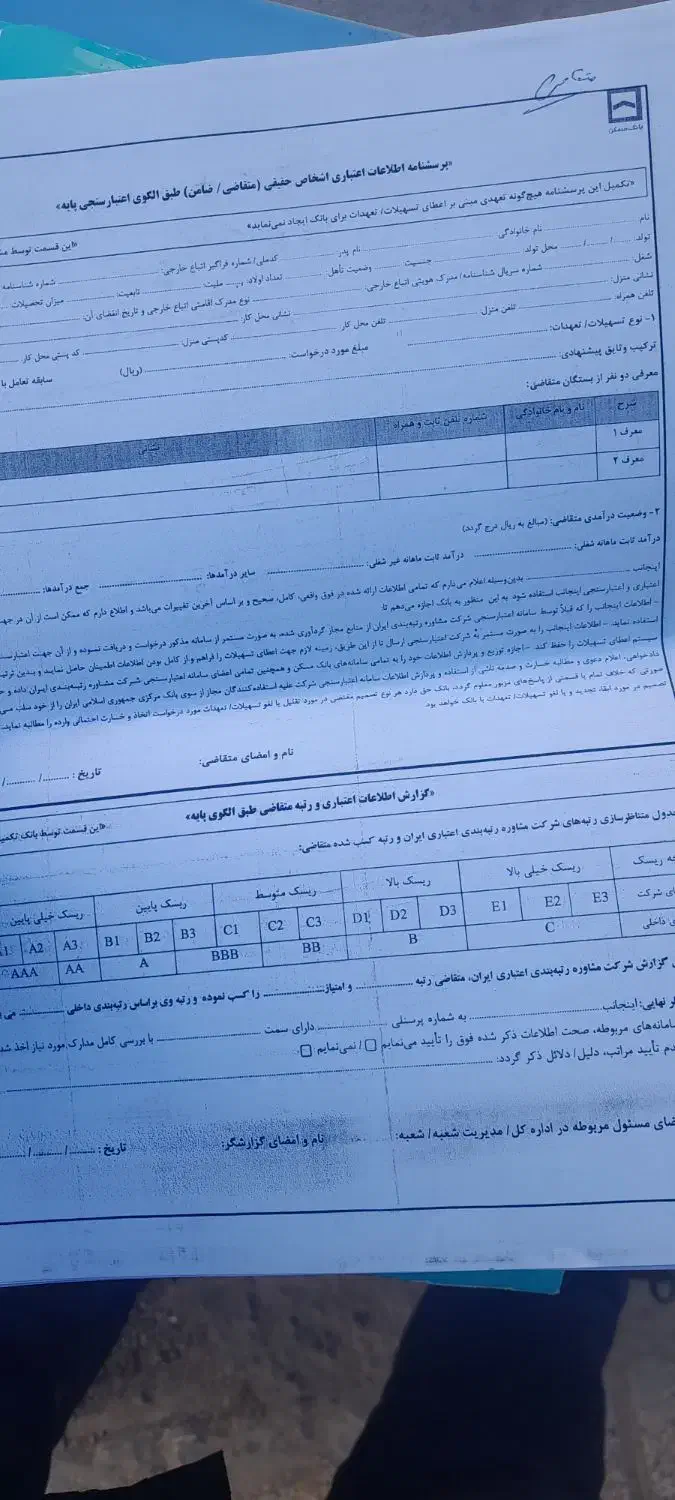 متقاضی
بانک مسکن
«پرسشنامه اطلاعات اعتباری اشخاص حقیقی (متقاضی/ ضامن) طبق الگوی اعتبارسنجی پایه»
«تکمیل این پرسشنامه هیچ‌گونه تعهدی مبنی بر اعطای تسهیلات/ تعهدات برای بانک ایجاد نمی‌نماید»
«این قسمت توسط
نام ........ نام خانوادگی ........ نام پدر ........ کدملی/ شماره فراگیر اتباع خارجی: ........ شماره شناسنامه
تولد ..../..../.... محل تولد ........ جنسیت ........ وضعیت تأهل ........ تعداد اولاد: ........ ملیت ........ تابعیت: ........ میزان تحصیلات ........
شغل ........ شماره سریال شناسنامه/ مدرک هویتی اتباع خارجی: ........ نوع مدرک اقامتی اتباع خارجی و تاریخ انقضای آن:
نشانی منزل: ........ نشانی محل کار ........
تلفن همراه: ........ تلفن منزل ........ تلفن محل کار ........ کدپستی منزل: ........ کد پستی محل کار:
۱- نوع تسهیلات/ تعهدات: ........ مبلغ مورد درخواست: ........ (ریال) سابقه تعامل با
ترکیب وثایق پیشنهادی: ........
معرفی دو نفر از بستگان متقاضی:
شرح نام و نام خانوادگی شماره تلفن ثابت و همراه نشانی
معرف ۱
معرف ۲
۲- وضعیت درآمدی متقاضی: (مبالغ به ریال درج گردد)
درآمد ثابت ماهانه شغلی: ........ درآمد ثابت ماهانه غیر شغلی: ........ سایر درآمدها: ........ جمع درآمدها: ........
اینجانب ........ بدین‌وسیله اعلام می‌دارم که تمامی اطلاعات ارائه شده در فوق واقعی، کامل، صحیح و بر اساس آخرین تغییرات می‌باشد و اطلاع دارم که ممکن است از آن در جهت
اعتباری و اعتبارسنجی اینجانب استفاده شود. به این منظور به بانک اجازه می‌دهم تا:
- اطلاعات اینجانب را که قبلاً توسط سامانه اعتبارسنجی شرکت مشاوره رتبه‌بندی ایران از منابع مجاز گردآوری شده، به صورت مستمر از سامانه مذکور درخواست و دریافت نموده و از آن جهت
استفاده نماید. - اطلاعات اینجانب را به صورت مستمر به شرکت اعتبارسنجی ارسال تا از این طریق، زمینه لازم جهت اعطای تسهیلات را فراهم و از کامل بودن اطلاعات اطمینان حاصل نمایند و بدین
سیستم اعطای تسهیلات را حفظ کند. - اجازه توزیع و پردازش اطلاعات خود را به تمامی سامانه‌های بانک مسکن و همچنین تمامی اعضای سامانه اعتبارسنجی شرکت مشاوره رتبه‌بندی ایران داده و
دادخواهی، اعلام دعوی و مطالبه خسارت و صدمه ناشی از استفاده و پردازش اطلاعات سامانه اعتبارسنجی شرکت علیه استفاده‌کنندگان مجاز از سوی بانک مرکزی جمهوری اسلامی ایران را از خود سلب
صورتی که خلاف تمام یا قسمتی از پاسخ‌های مزبور معلوم گردد، بانک حق دارد هر نوع تصمیم مقتضی در مورد تقلیل یا لغو تسهیلات/ تعهدات مورد درخواست اتخاذ و خسارت احتمالی وارده را مطالبه نماید.
تصمیم در مورد ابقاء، تجدید و یا لغو تسهیلات/ تعهدات با بانک خواهد بود.
نام و امضای متقاضی: تاریخ : ......../......../
«گزارش اطلاعات اعتباری و رتبه متقاضی طبق الگوی پایه»
«این قسمت توسط بانک
جدول متناظرسازی رتبه‌های شرکت مشاوره رتبه‌بندی اعتباری ایران و رتبه کسب شده متقاضی:
ریسک ریسک خیلی بالا ریسک بالا ریسک متوسط ریسک پایین ریسک خیلی پایین
شرکت E3 E2 E1 D3 D2 D1 C3 C2 C1 B3 B2 B1 A3 A2 A1
داخلی C B BB BBB A AA AAA
گزارش شرکت مشاوره رتبه‌بندی اعتباری ایران، متقاضی رتبه ........ و امتیاز ........ را کسب نموده و رتبه وی براساس رتبه‌بندی داخلی ........
نهایی: اینجانب ........ به شماره پرسنلی ........ دارای سمت ........ با بررسی کامل مدارک مورد نیاز اخذ
سامانه‌های مربوطه، صحت اطلاعات ذکر شده فوق را تأیید می‌نمایم □ / نمی‌نمایم □.
عدم تأیید مراتب، دلیل/ دلائل ذکر گردد: ........
امضای مسئول مربوطه در اداره کل/ مدیریت شعبه/ شعبه: نام و امضای گزارشگر: تاریخ : ......../......../........